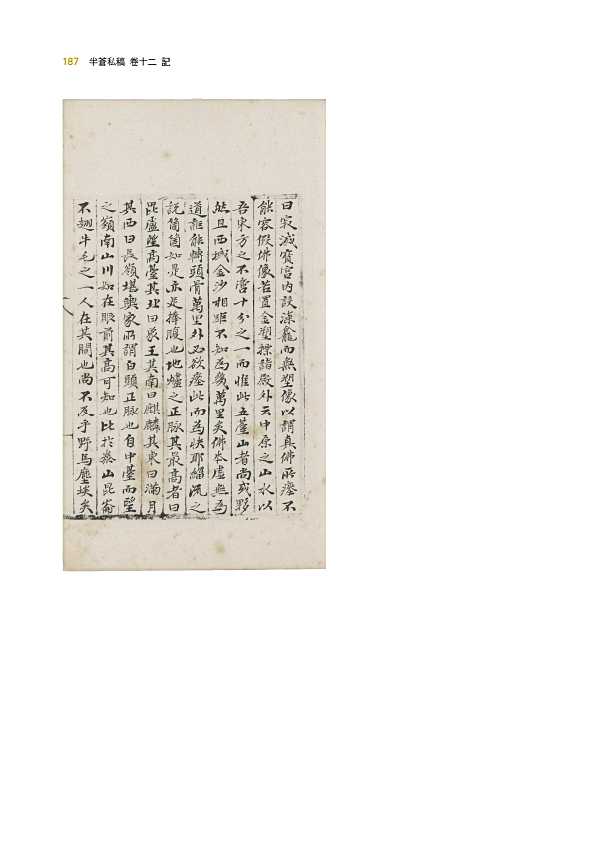 187 半蒼私稿 卷十二 記
曰寂滅寶宮內設漆龕而無塑像以謂真佛所瘞不
能容假佛像若置金塑揉諸殿外云中原之山水以
吾東方之不啻十分之一而惟此五臺山者尚或夥
然且西域金沙相距不知為幾萬里矣佛本虛無為
道誰能轉頭骨萬里外必欲瘞此而為快耶緇流之
說箇箇如是亦足捧腹也地爐之正脉其最高者曰
毘盧望高臺其北曰象王其南曰麒麟其東曰滿月
其西曰長嶺堪輿家所謂白頭正脉也自中臺而望
之嶺南山川如在眼前其高可知也比於泰山昆崙
不翅牛毛之一人在其間也尚不及乎野馬塵埃矣